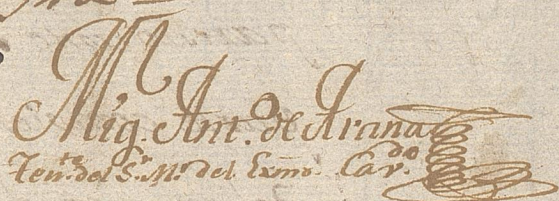 Mig. Antº. de Arana
Tente. del Sr. Mº. del Exmo. Cavdo.